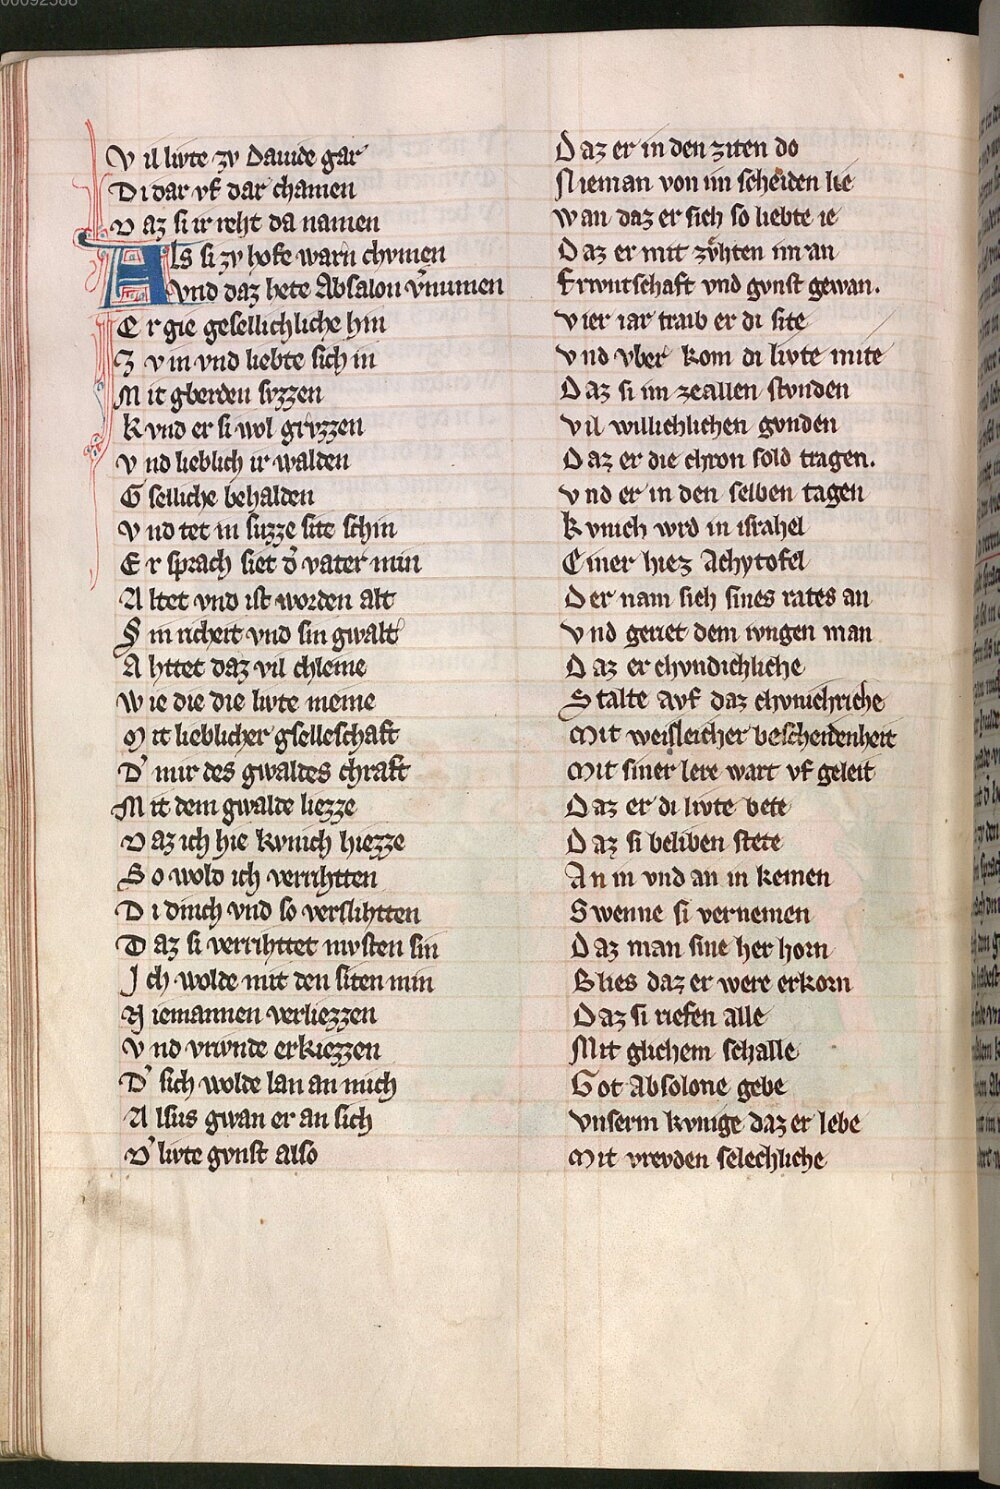 V il livte zv Dauide gar
D i dar vf dar chamen
D az si ir reht da namen
A ls si zv hofe warn chvmen
Vnd daz hete Absalon v̾numen
E r gie gesellichliche hin
Z v in vnd liebte sich in
M it gberden svzzen
K vnd er si wol grvzzen
V nd lieblich ir walden
G selliche behalden
V nd tet in suzze site schin
E r sprach siet d̾ vater min
A ltet vnd ist worden alt
S in richeit vnd sin gwalt
A httet daz vil chleine
W ie die die livte meine
M it lieblicher gselleschaft
D̾ mir des gwaldes chraft
M it dem gwalde liezze
D az ich hie kvnich hiezze
S o wold ich verrihtten
D i dinch vnd so verslihtten
D az si verrihttet mvsten sin
I ch wolde mit den siten min
N iemannen verliezzen
V nd vrivnde erkiezzen
D̾ sich wolde lan an mich
A lsus gwan er an sich
D̾ livte gvnst also
D az er in den ziten do
N ieman von im scheiden lie
W an daz er sich so liebte ie
D az er mit zvhten im an
F rivntschaft vnd gvnst gewan.
V ier iar traib er di site
V nd vber kom di livte mite
D az si im ze allen stvnden
V il willichlichen gonden
D az er die chron sold tragen.
V nd er in den selben tagen
K vnich wrd in israhel
E iner hiez Achytofel
D er nam sich sines rates an
V nd geriet dem ivngen man
D az er chvndichliche
S talte avf daz chvnichriche
M it weisleicher bescheidenheit
M it siner lere wart vf geleit
D az er di livte bete
D az si beliben stete
A n in vnd an in keinen
S wenne si vernemen
D az man sine her horn
B lies daz er were erkorn
D az si riefen alle
M it glichem schalle
G ot Absolone gebe
V nserm kvnige daz er lebe
M it vrevden selechliche